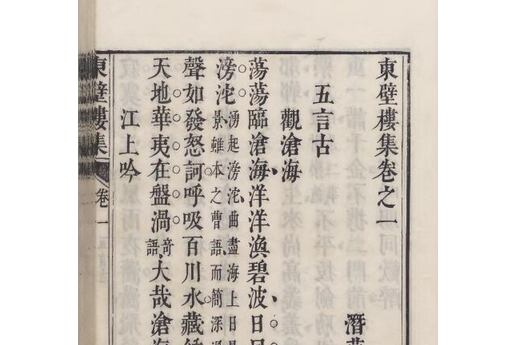 東壁樓集卷之一
潛
五言古
觀滄海
蕩蕩臨滄海洋洋渙碧波日
滂沱
湧起滂沱曲盡海上日
景雖本之曹語而簡深
聲如發怒訶呼吸百川水藏
天地華夷在盤渦奇語大哉滄
江上吟
東壁樓集
卷一